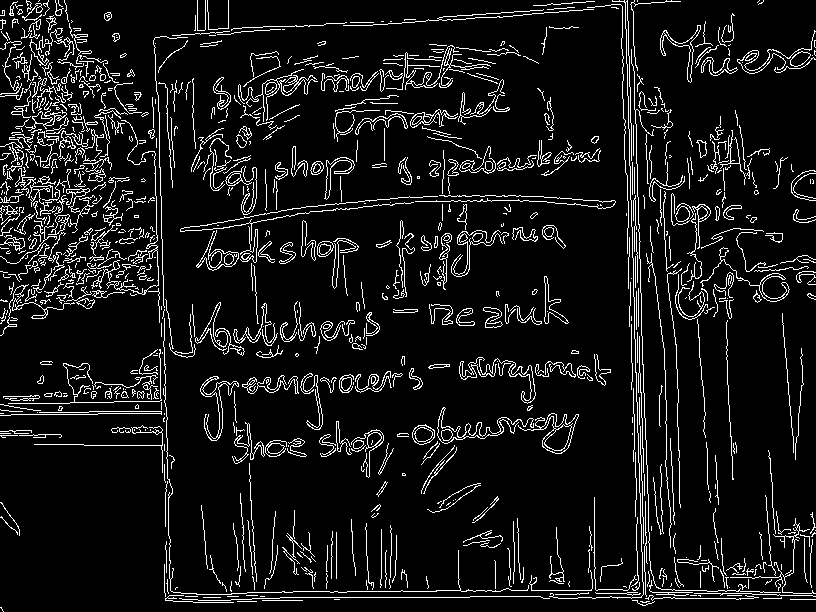 supermarket
market
toy shop - s. z zabawkami
bookshop - księgarnia
butcher's - rzeźnik
greengrocer's - warzywniak
shoe shop - obuwniczy
Topic:
07.03